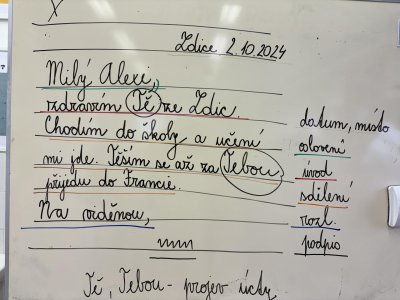 Zdice 2.10.2024
Milý Alexi,
zdravím Tě ze Zdic.
Chodím do školy a učení
mi jde. Těším se až za Tebou
přijedu do Francie.
Na viděnou,
datum, místo
oslovení
úvod
sdělení
rozl.
podpis
Tě, Tebou - projev úcty